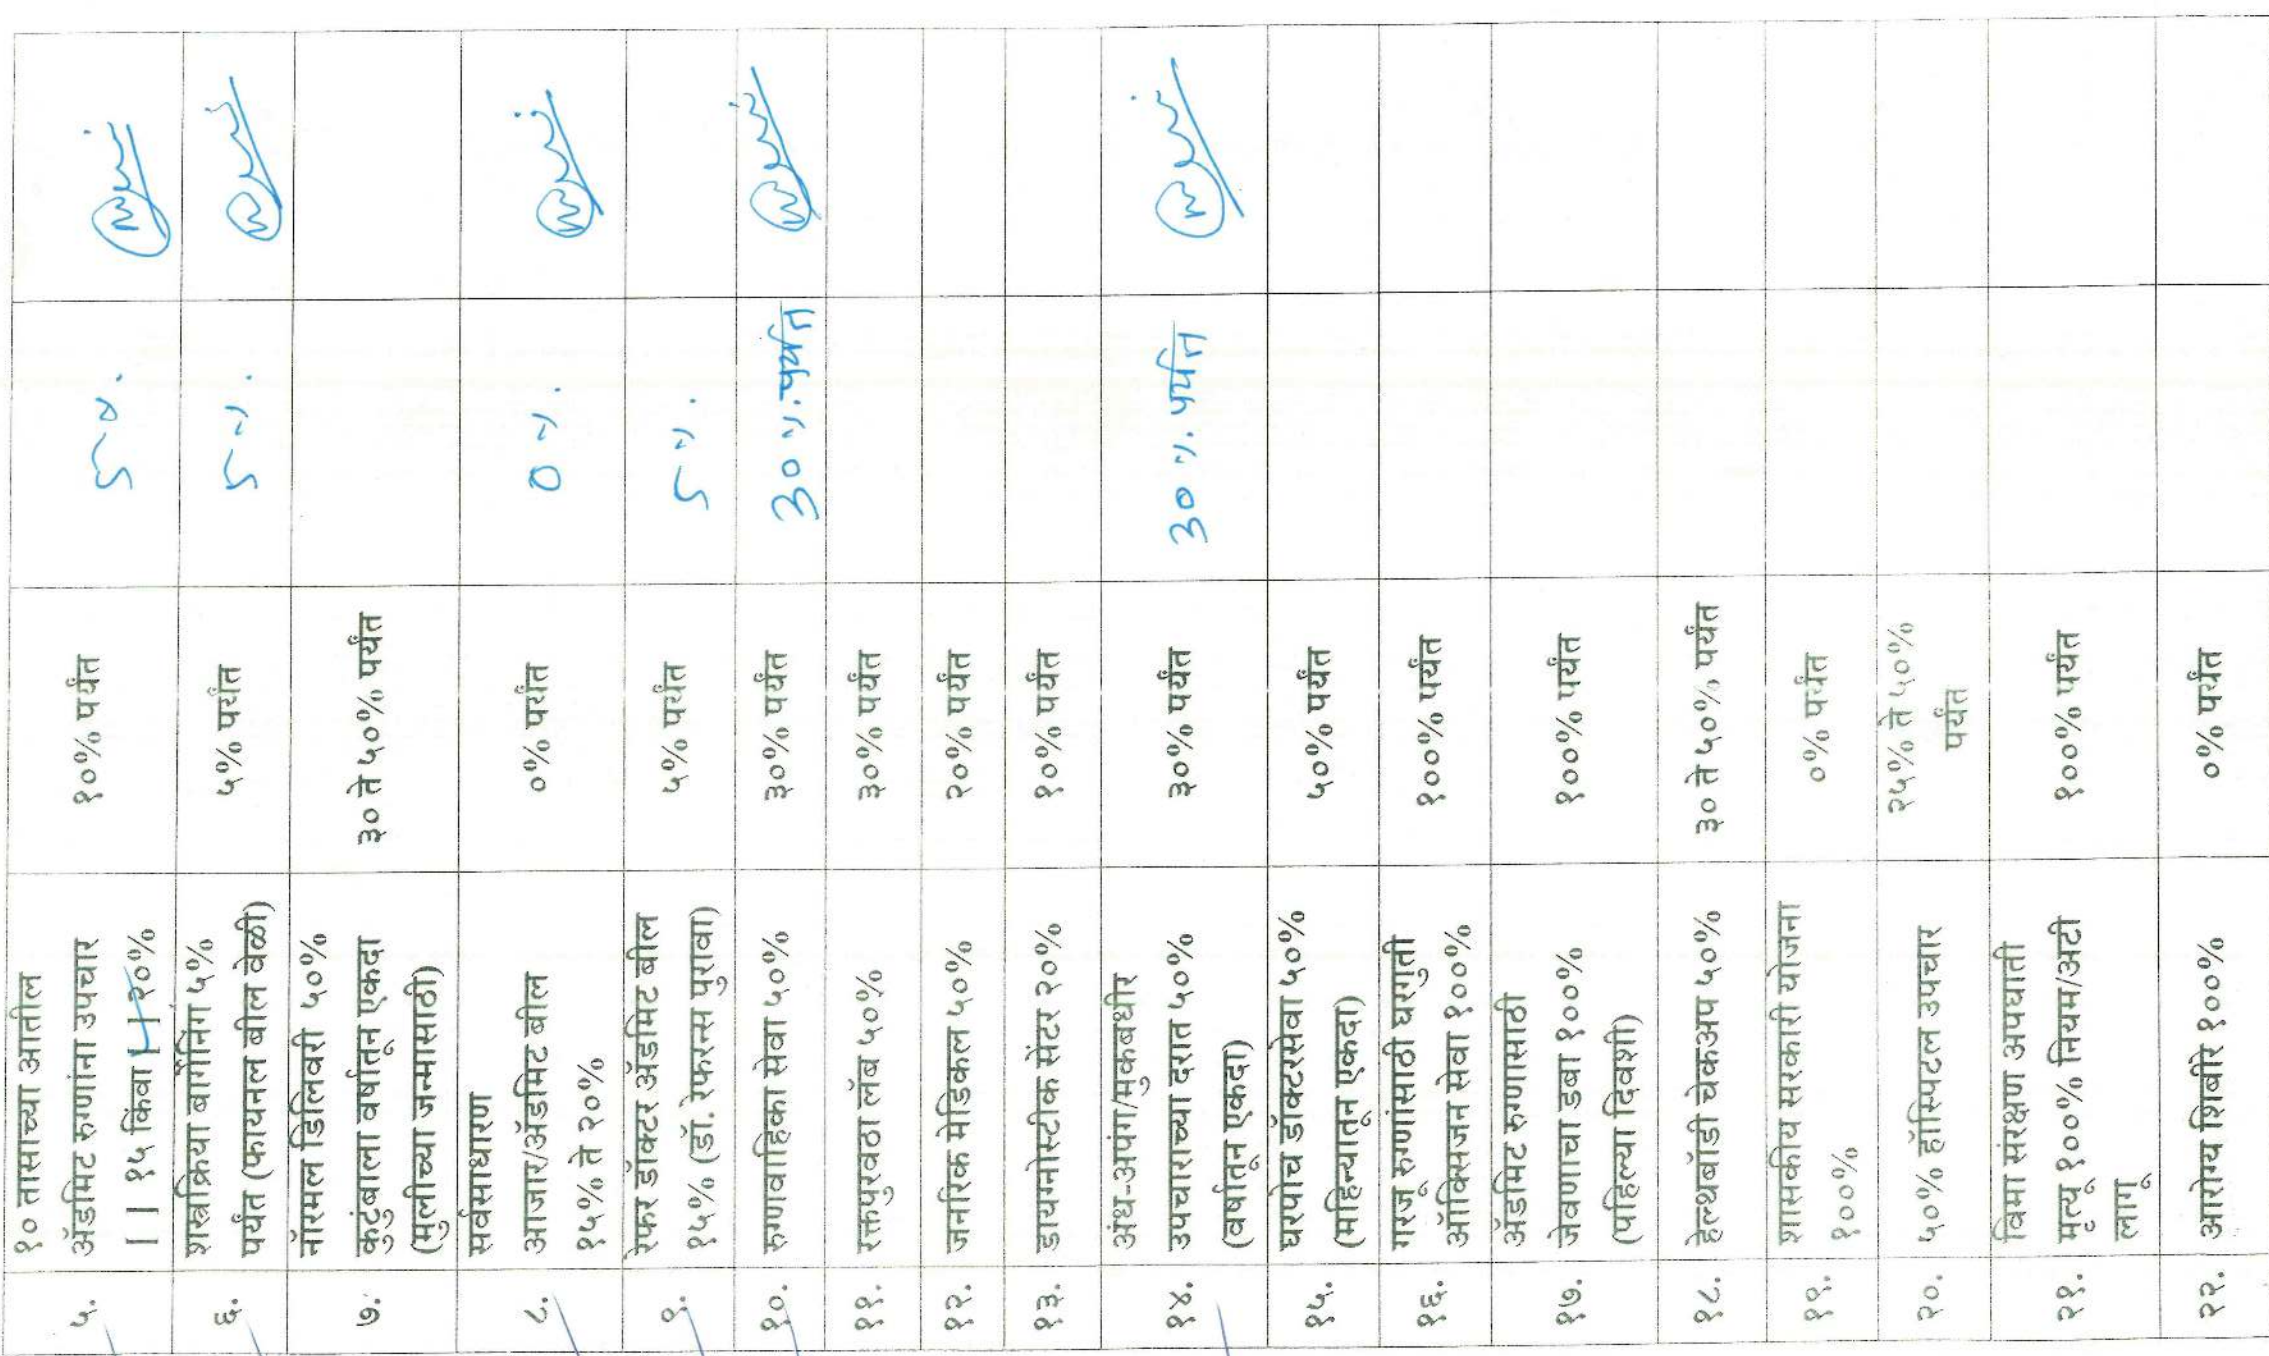 ५. १० तासाच्या आतील
अ‍ॅडमिट रुग्णांना उपचार १०% पर्यंत 5 %.
[ ] १५ किंवा [ ] २०%
६. शस्त्रक्रिया बार्गेनिंग ५%
पर्यंत (फायनल बील वेळी) ५% पर्यंत 5 %.
७. नॉरमल डिलिवरी ५०%
कुटुंबाला वर्षातून एकदा ३० ते ५०% पर्यंत
(मुलीच्या जन्मासाठी)
८. सर्वसाधारण
आजार/अ‍ॅडमिट बील ०% पर्यंत 0 %.
१५% ते २०%
९. रेफर डॉक्टर अ‍ॅडमिट बील
१५% (डॉ. रेफरन्स पुरावा) ५% पर्यंत 5 %.
१०. रुग्णवाहिका सेवा ५०% ३०% पर्यंत 30 %. पर्यंत
११. रक्तपुरवठा लॅब ५०% ३०% पर्यंत
१२. जनरिक मेडिकल ५०% २०% पर्यंत
१३. डायग्नोस्टीक सेंटर २०% १०% पर्यंत
१४. अंध-अपंग/मुकबधीर
उपचाराच्या दरात ५०% ३०% पर्यंत 30 %. पर्यंत
(वर्षातून एकदा)
१५. घरपोच डॉक्टरसेवा ५०% ५०% पर्यंत
(महिन्यातून एकदा)
१६. गरजू रुग्णांसाठी घरगुती
ऑक्सिजन सेवा १००% १००% पर्यंत
१७. अ‍ॅडमिट रुग्णासाठी
जेवणाचा डबा १००% १००% पर्यंत
(पहिल्या दिवशी)
१८. हेल्थबॉडी चेकअप ५०% ३० ते ५०% पर्यंत
१९. शासकीय सरकारी योजना
१००% ०% पर्यंत
२०. ५०% हॉस्पिटल उपचार २५% ते ५०%
पर्यंत
२१. विमा संरक्षण अपघाती
मृत्यू १००% नियम/अटी १००% पर्यंत
लागू
२२. आरोग्य शिबीरे १००% ०% पर्यंत